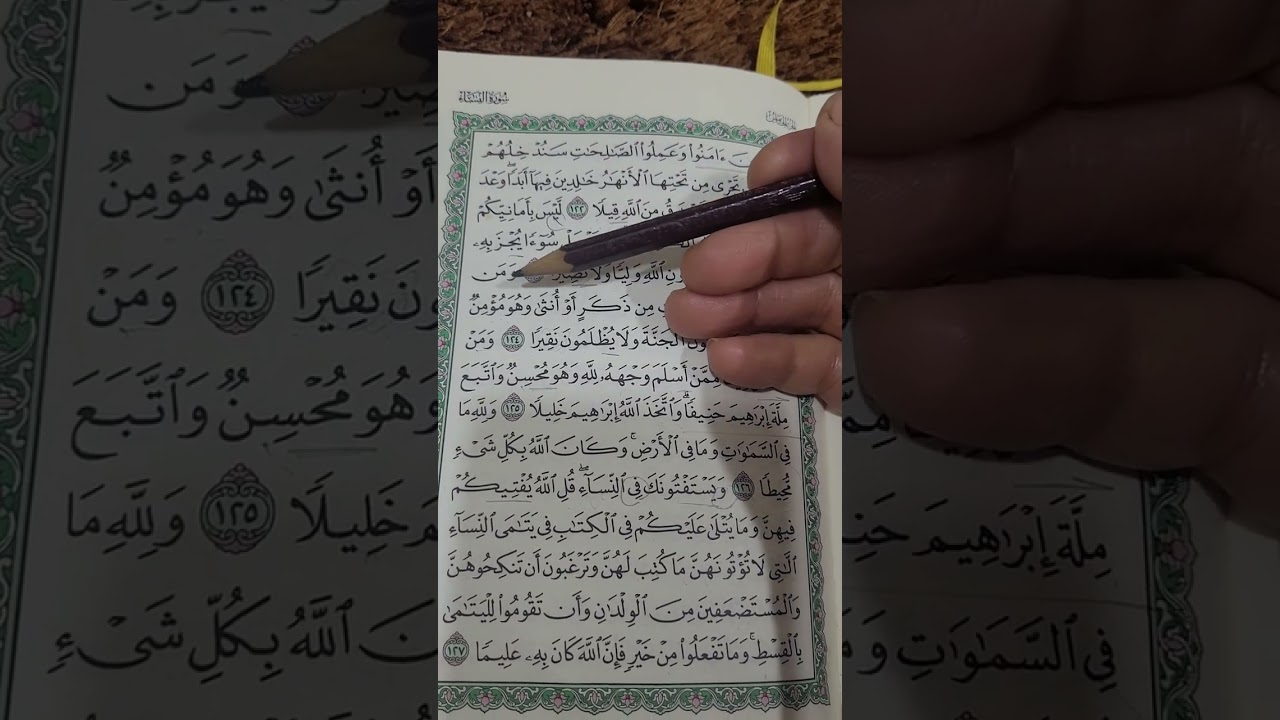 سُورَةُ النِّسَاءِ
ءَامَنُوا۟ وَعَمِلُوا۟ ٱلصَّٰلِحَٰتِ سَنُدْخِلُهُمْ
تَجْرِى مِن تَحْتِهَا ٱلْأَنْهَٰرُ خَٰلِدِينَ فِيهَآ أَبَدًا ۖ وَعْدَ
مِنَ ٱللَّهِ قِيلًا ١٢٢ لَّيْسَ بِأَمَانِيِّكُمْ
سُوٓءًا يُجْزَ بِهِۦ
ٱللَّهِ وَلِيًّا وَلَا نَصِيرًا وَمَن
مِن ذَكَرٍ أَوْ أُنثَىٰ وَهُوَ مُؤْمِنٌ
ٱلْجَنَّةَ وَلَا يُظْلَمُونَ نَقِيرًا ١٢٤ وَمَنْ
مِّمَّنْ أَسْلَمَ وَجْهَهُۥ لِلَّهِ وَهُوَ مُحْسِنٌ وَٱتَّبَعَ
مِلَّةَ إِبْرَٰهِيمَ حَنِيفًا ۗ وَٱتَّخَذَ ٱللَّهُ إِبْرَٰهِيمَ خَلِيلًا ١٢٥ وَلِلَّهِ مَا
فِى ٱلسَّمَٰوَٰتِ وَمَا فِى ٱلْأَرْضِ ۚ وَكَانَ ٱللَّهُ بِكُلِّ شَىْءٍ
مُّحِيطًا ١٢٦ وَيَسْتَفْتُونَكَ فِى ٱلنِّسَآءِ ۖ قُلِ ٱللَّهُ يُفْتِيكُمْ
فِيهِنَّ وَمَا يُتْلَىٰ عَلَيْكُمْ فِى ٱلْكِتَٰبِ فِى يَتَٰمَى ٱلنِّسَآءِ
ٱلَّٰتِى لَا تُؤْتُونَهُنَّ مَا كُتِبَ لَهُنَّ وَتَرْغَبُونَ أَن تَنكِحُوهُنَّ
وَٱلْمُسْتَضْعَفِينَ مِنَ ٱلْوِلْدَٰنِ وَأَن تَقُومُوا۟ لِلْيَتَٰمَىٰ
بِٱلْقِسْطِ ۚ وَمَا تَفْعَلُوا۟ مِنْ خَيْرٍ فَإِنَّ ٱللَّهَ كَانَ بِهِۦ عَلِيمًا ١٢٧